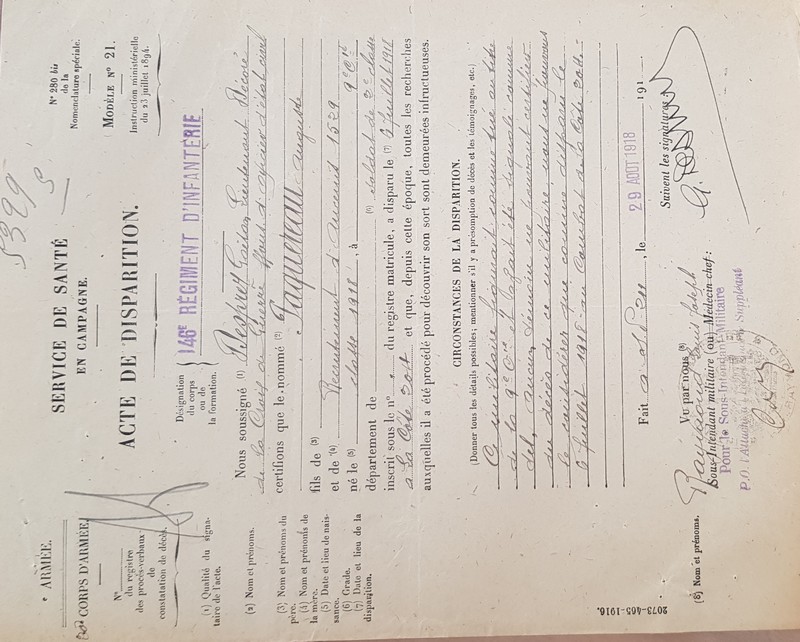 5329
N° 280 bis
de la
Nomenclature spéciale.
MODÈLE N° 21.
Instruction ministérielle
du 23 juillet 1894.
SERVICE DE SANTÉ
EN CAMPAGNE.
ACTE DE DISPARITION.
e ARMÉE.
CORPS D'ARMÉE
N°
du registre
des procès-verbaux
de
constatation de décès.
Désignation
du corps
ou de
la formation.
146e RÉGIMENT D'INFANTERIE
(1) Qualité du signa-
taire de l'acte.
(2) Nom et prénoms.
(3) Nom et prénoms du
père.
(4) Nom et prénoms de
la mère.
(5) Date et lieu de nais-
sance.
(6) Grade.
(7) Date et lieu de la
disparition.
Nous soussigné (1) Gaston Lieutenant Décoré
de la Croix de Guerre d'état civil
certifions que le nommé (2) Paquereau Auguste
fils de (3)
et de (4) Recrutement d'Ancenis 1529
né le (5) classe 1918, à 9e Cie
département de (6) soldat de 2e classe
inscrit sous le n° du registre matricule, a disparu le (7) juillet 1918
à la Côte 204 et que, depuis cette époque, toutes les recherches
auxquelles il a été procédé pour découvrir son sort sont demeurées infructueuses.
CIRCONSTANCES DE LA DISPARITION.
(Donner tous les détails possibles; mentionner s'il y a présomption de décès et les témoignages, etc.)
Ce militaire figurait comme tué au
de la 9e Cie et ayant été signalé comme
tel, aucun témoin ne pouvant certifier
du décès de ce militaire, nous ne pouvons
le considérer que comme disparu le
juillet 1918 au combat de la Côte 204.
Fait, le 29 AOUT 1918 191
Suivent les signatures:
Vu par nous (8) Raymond Louis Joseph
Sous-Intendant militaire (ou) Médecin chef:
Pour le Sous-Intendant Militaire
P.O. l'Attaché Suppléant
(8) Nom et prénoms.
2073-495-1916.